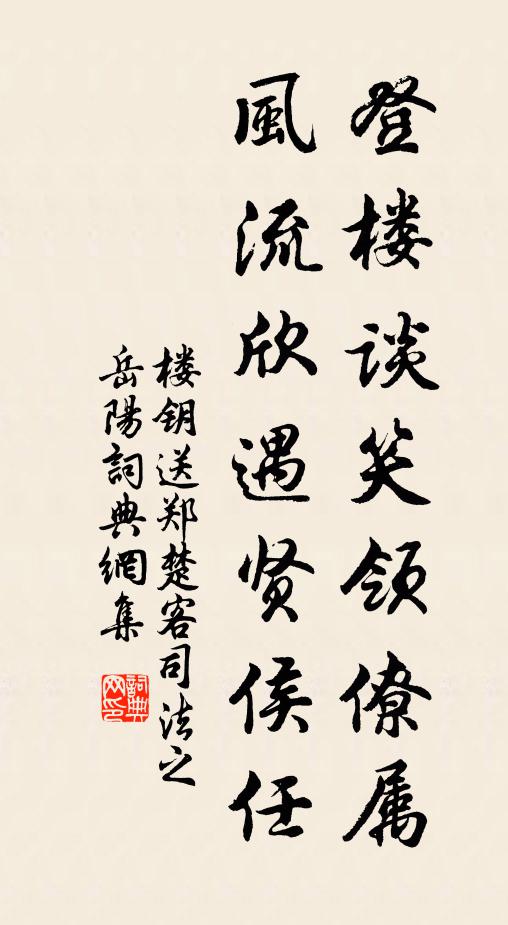 登楼谈笑领僚属
風流欣遇贤侯任
楼钥送郑楚客司法之
岳陽詞典網集
詞典网印